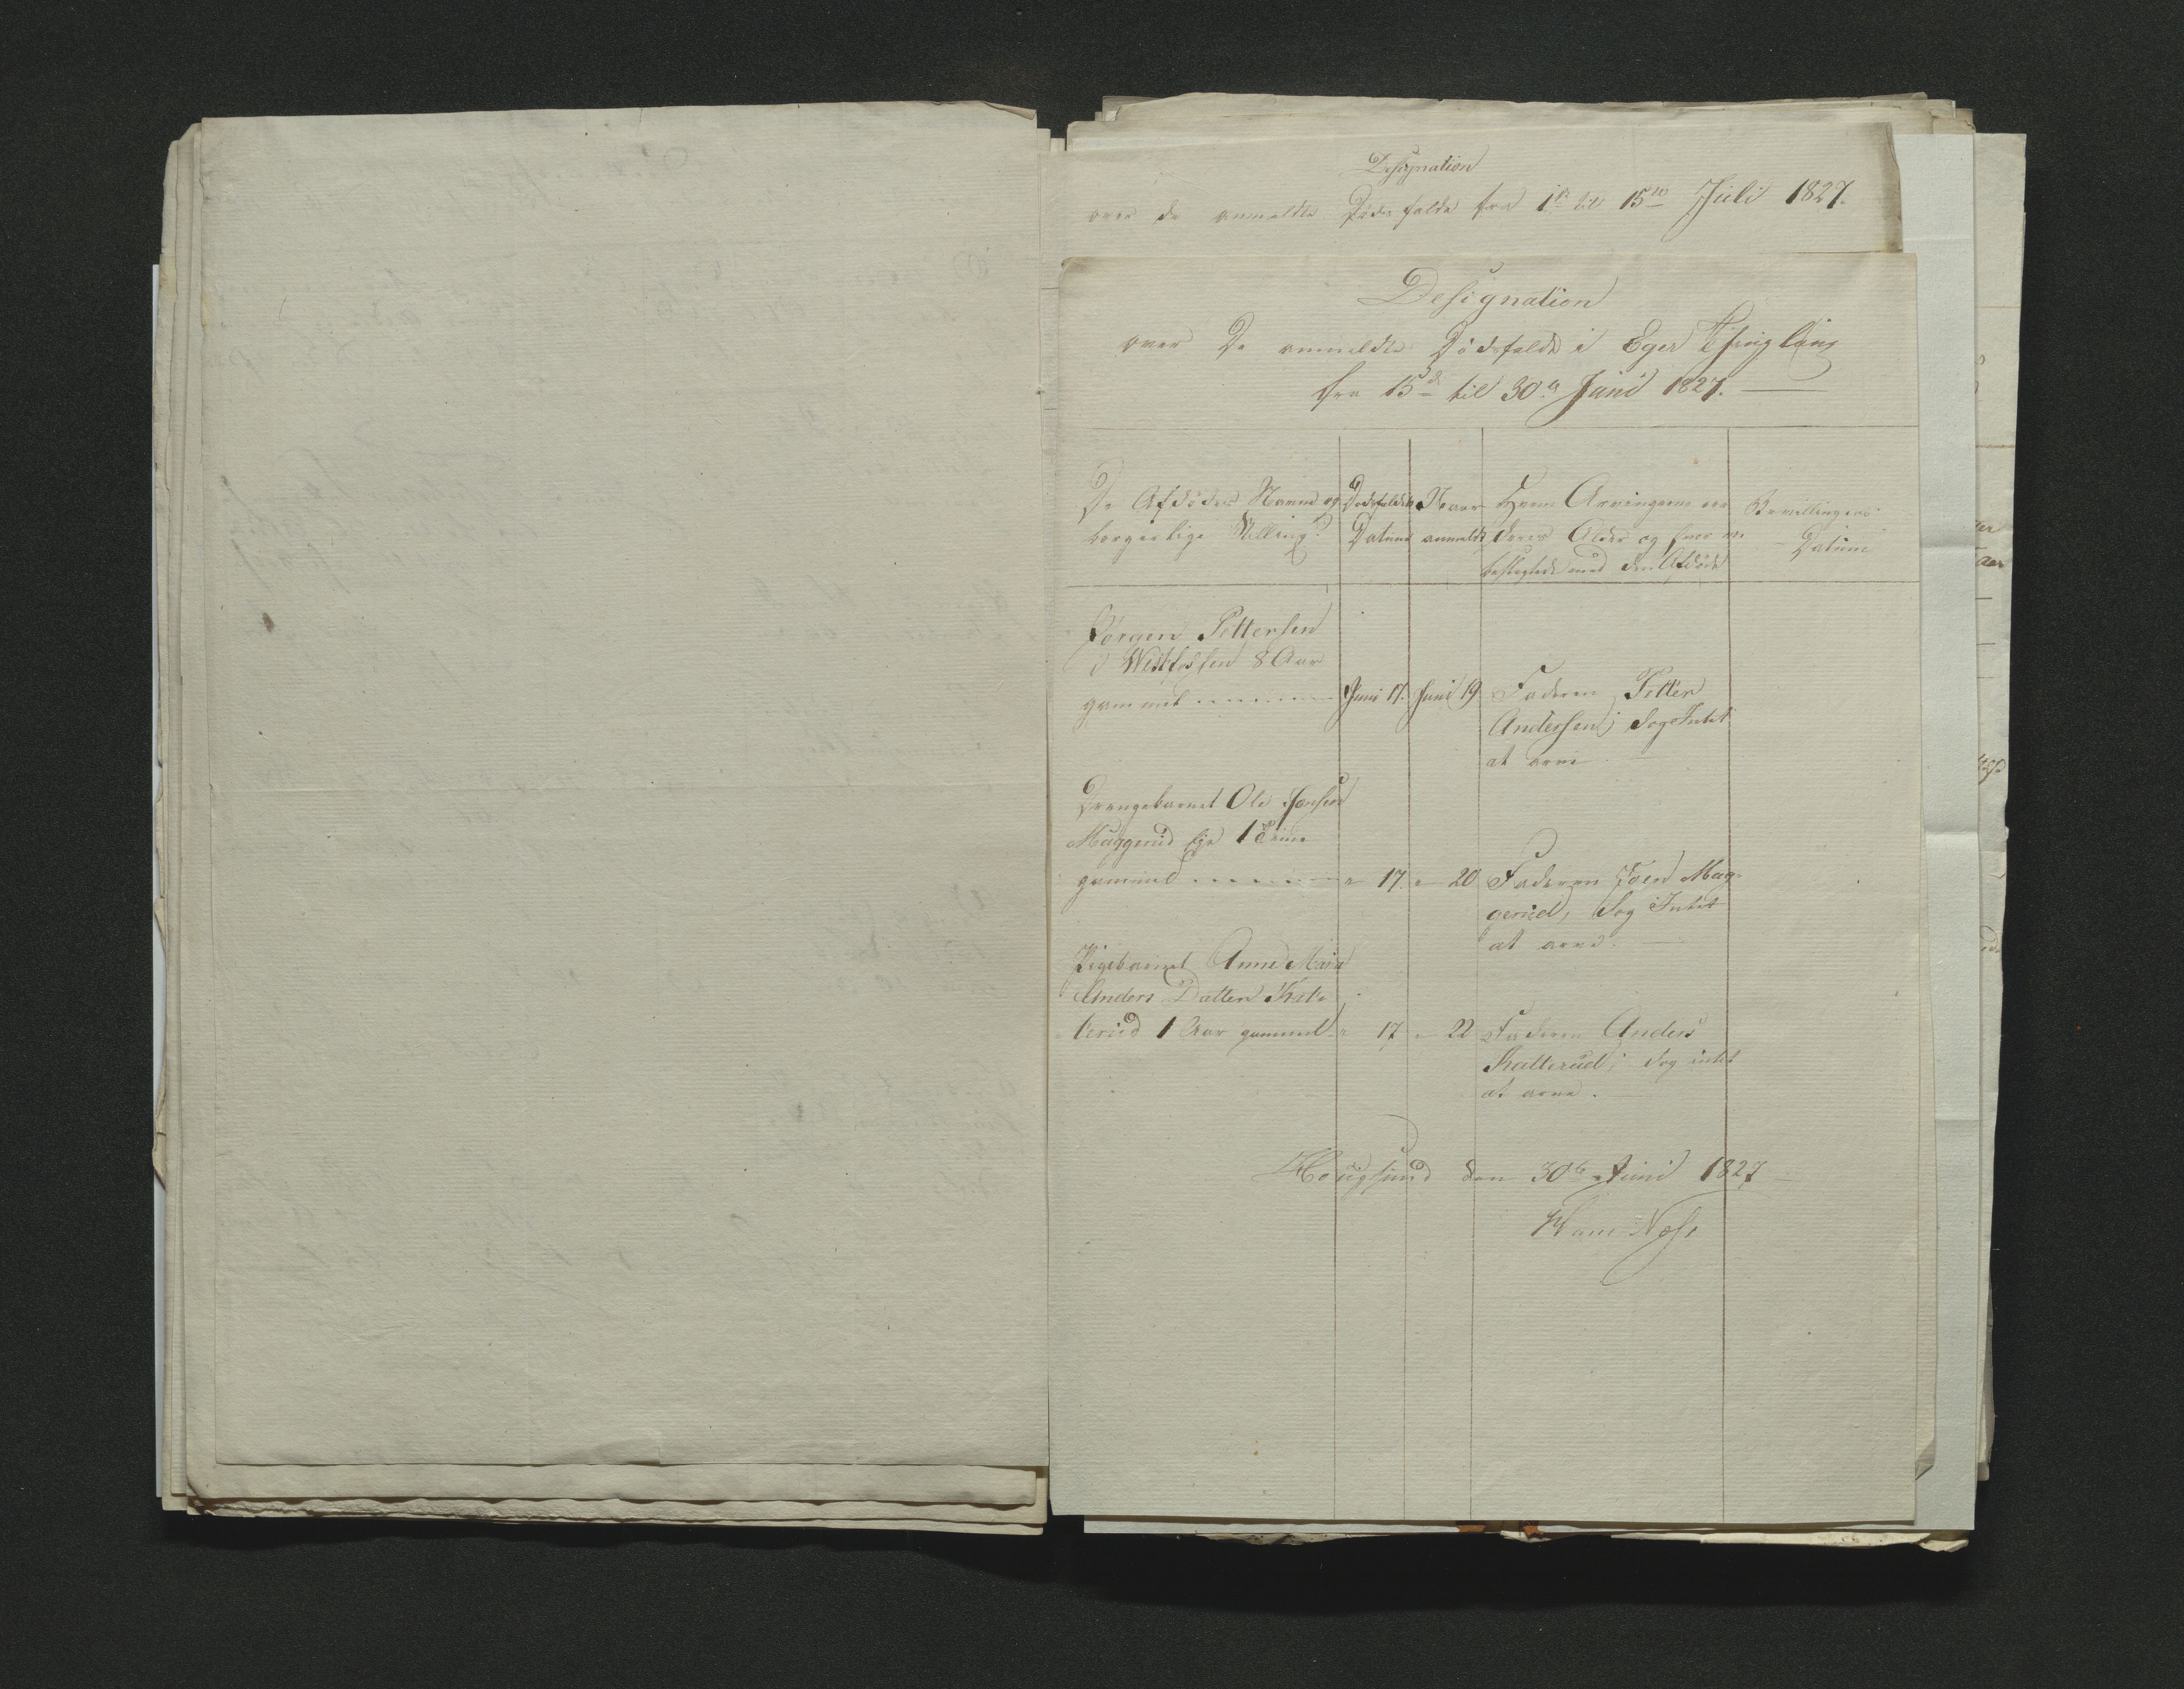 Designation
over de anmeldte Dødsfalde fra 1te til 15de Juli 1827.
Designation
over De anmeldte Dødsfalde i Eger Thinglaug
fra 15de til 30te Juni 1827.
De Afdødes Navne og
borgerlige Stilling
Dødsfaldets
Datum
Naar
anmeldt
Hvem Arvingerne ere
deres Alder og hvor nær
beslegtede med den Afdøde
Bevillingens
Datum
Jørgen Pettersen
i Westfossen 8 Aar
gammel Juni 17. Juni 19 Faderen Petter
Andersen; dog Intet
at arve
Drengebarnet Ole Jonsen
Maggerud Eje 1 Time
gammel " 17. " 20 Faderen Joen Mag-
gerud, dog Intet
at arve.
Pigebarnet Anne Maria
Anders Datter Skat-
terud 1 Aar gammel " 17 " 22 Faderen Anders
Skatterud; dog intet
at arve.
Hougsund den 30te Juni 1827